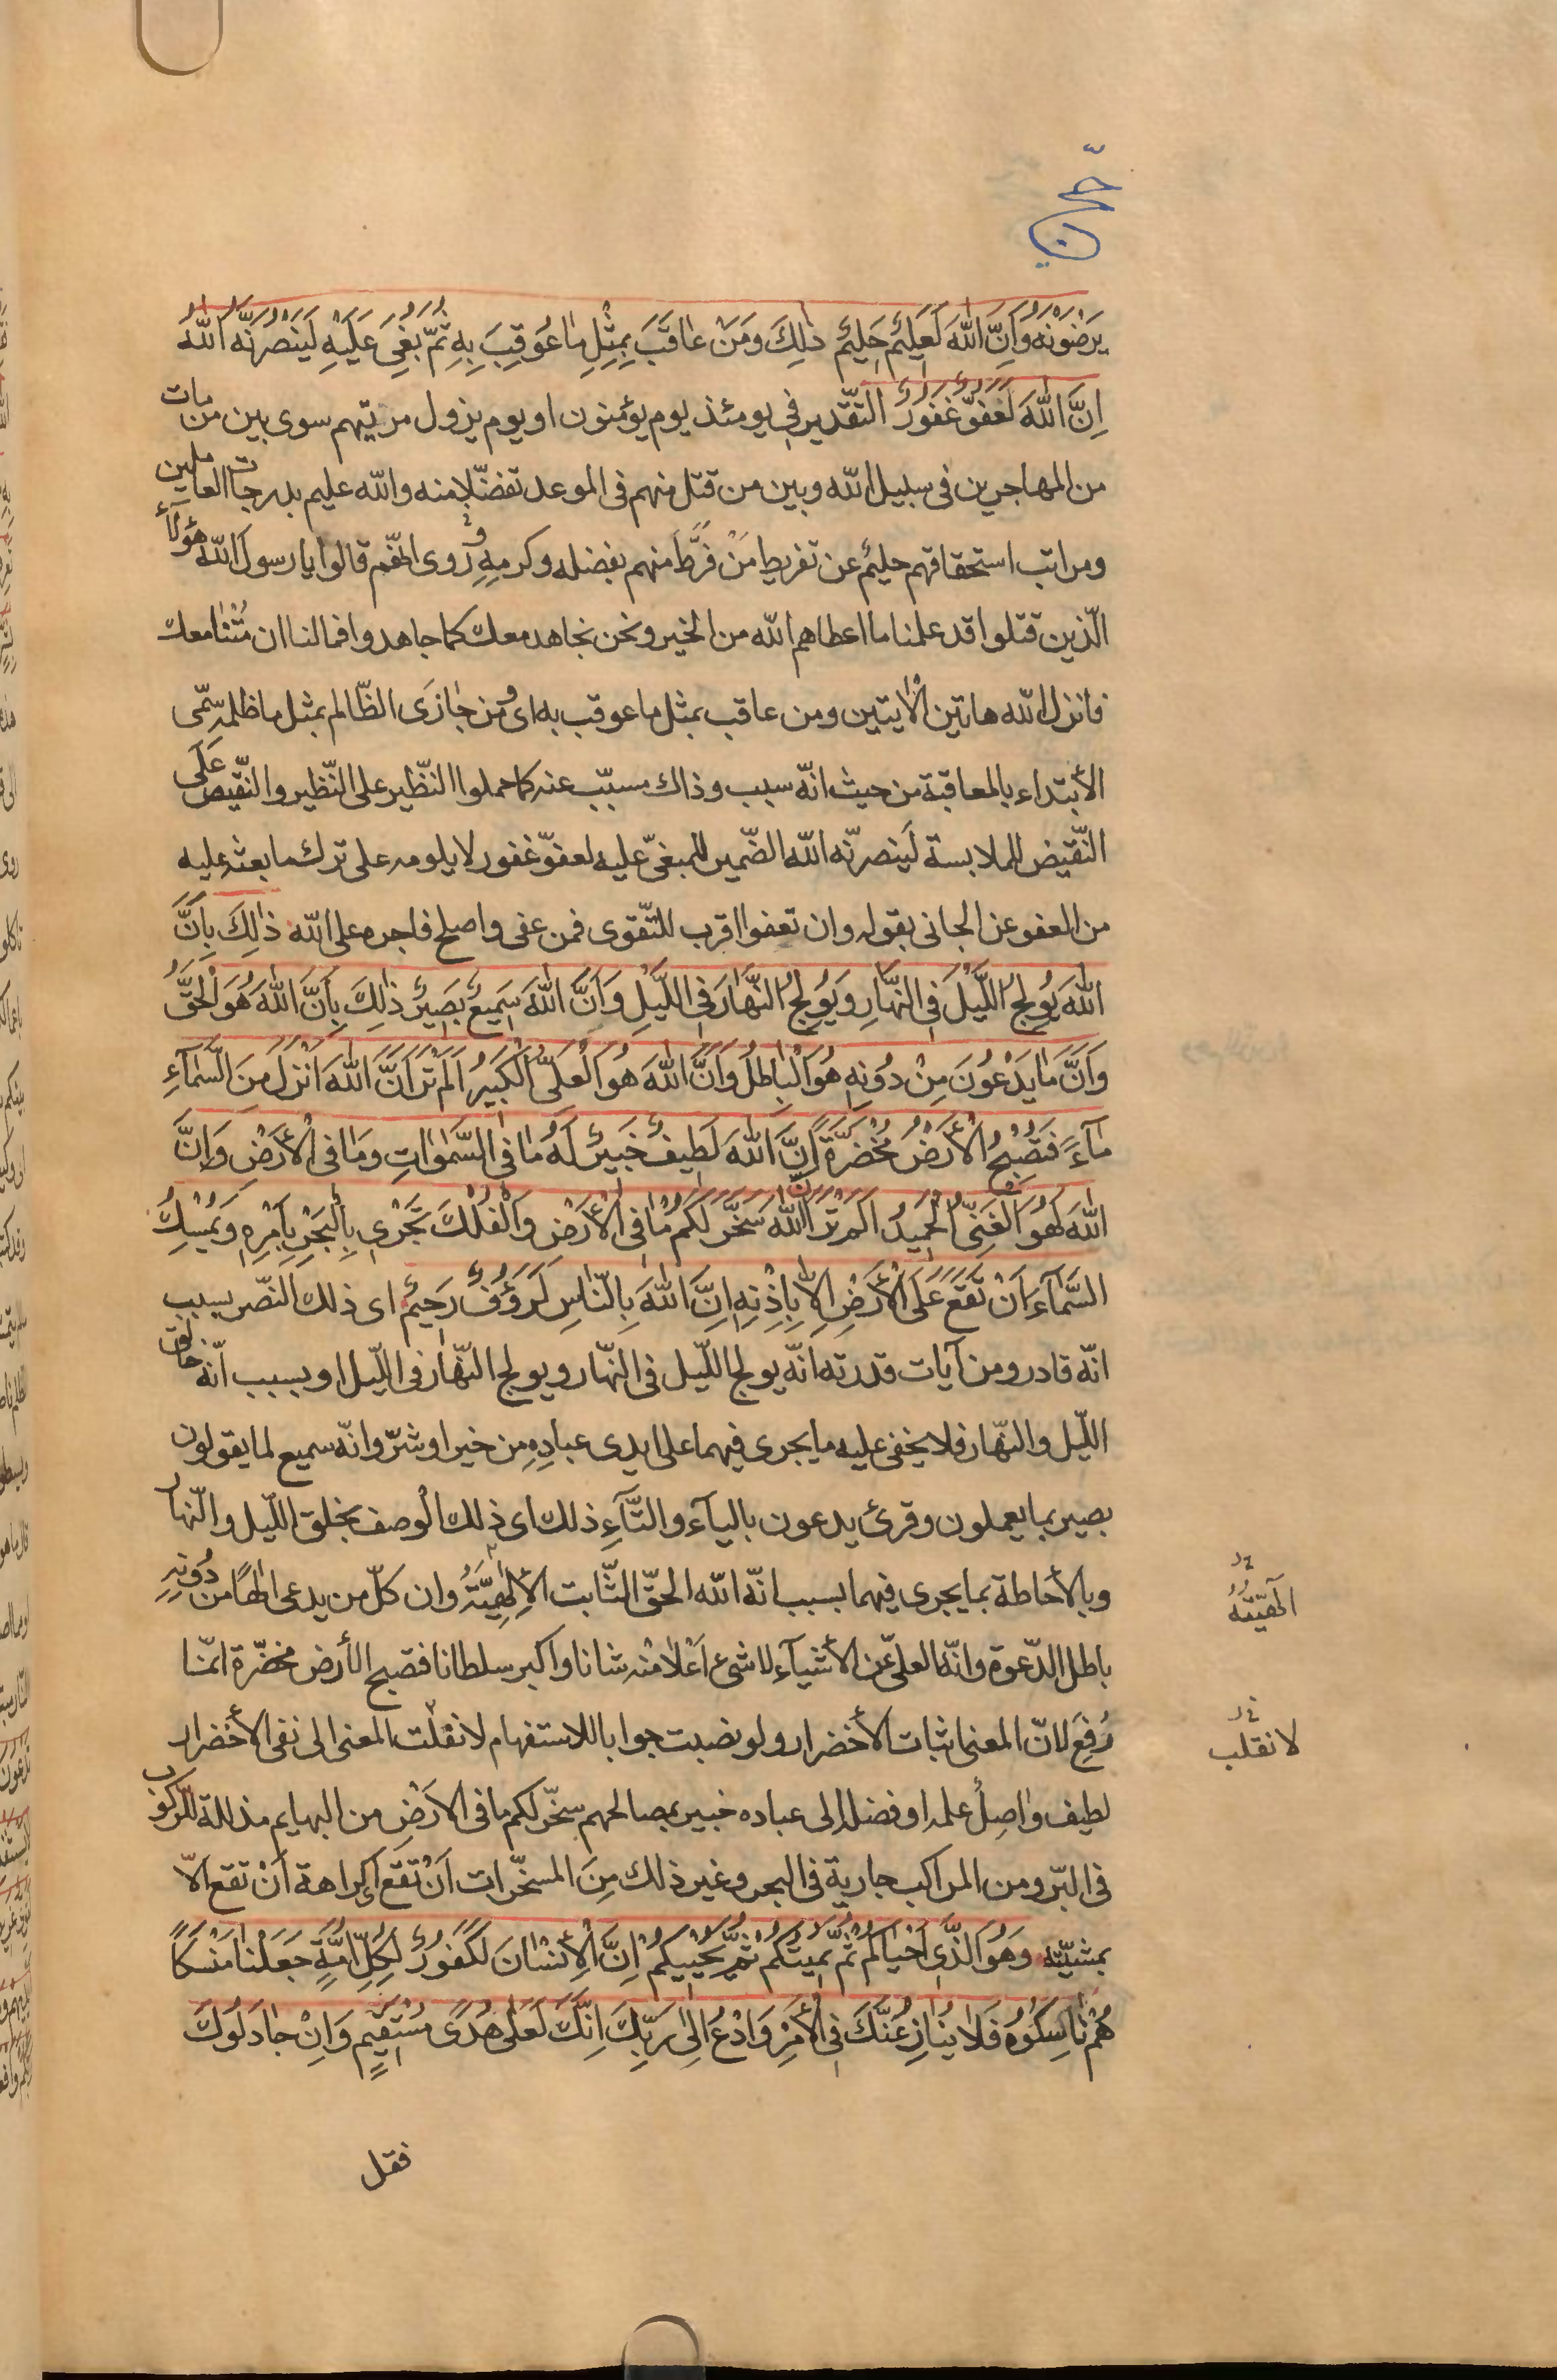 حجّ
يَرْضَوْنَهُ وَاِنَّ اللّٰهَ لَعَلِيمٌ حَلِيمٌ ذٰلِكَ وَمَنْ عٰاقَبَ بِمِثْلِ مٰا عُوقِبَ بِهِ ثُمَّ بُغِيَ عَلَيْهِ لَيَنْصُرَنَّهُ اللّٰهُ
اِنَّ اللّٰهَ لَعَفُوٌّ غَفُورٌ التّقدير في يومئذ يوم يؤمنون او يوم يزول مريتهم سوى بين من مات
من المهاجرين فى سبيل الله وبين من قتل منهم فى الموعد تفضّلا منه والله عليم بدرجات العاملين
ومراتب استحقاقهم حليمٌ عن تفريط مَنْ فرَّطَ منهم بفضله وكرمهِ وروى انّهم قالوا يا رسول الله هٰؤلآء
الّذين قتلوا قد علمنا ما اعطاهم الله من الخير ونحن نجاهد معك كما جاهدوا فما لنا ان مُتْنٰا معك
فانزل الله هاتين الأيتين ومن عاقب بمثل ما عوقب به اى ومن جٰازَى الظّالم بمثل ما ظلمه سمّى
الأبتداء بالمعاقبة من حيث انّه سبب وذاك مسبّب عنه كما حملوا النّظير على النّظير والنّقيض عَلَى
النّقيض للملابسة لَينصرنّه الله الضّمير للمبغىّ عليه لعفوّ غفور لا يلومه على ترك ما بعثه عليه
من العفو عن الجانى بقوله وان تعفوا اقرب للتّقوى فمن عفى واصلح فاجره على الله ذٰلِكَ بِاَنَّ
اللّٰهَ يُولِجُ اللَّيْلَ فِى النَّهٰارِ وَيُولِجُ النَّهٰارَ فِى اللَّيْلِ وَاَنَّ اللّٰهَ سَمِيعٌ بَصِيرٌ ذٰلِكَ بِاَنَّ اللّٰهَ هُوَ الْحَقُّ
وَاَنَّ مٰا يَدْعُونَ مِنْ دُونِهِ هُوَ الْبٰاطِلُ وَاَنَّ اللّٰهَ هُوَ الْعَلِىُّ الْكَبِيرُ اَلَمْ تَرَ اَنَّ اللّٰهَ اَنْزَلَ مِنَ السَّمٰآءِ
مٰآءً فَتُصْبِحُ الْأَرْضُ مُخْضَرَّةً اِنَّ اللّٰهَ لَطِيفٌ خَبِيرٌ لَهُ مٰا فِى السَّمٰوٰاتِ وَمٰا فِى الْأَرْضِ وَاِنَّ
اللّٰهَ لَهُوَ الْغَنِىُّ الْحَمِيدُ اَلَمْ تَرَ اَنَّ اللّٰهَ سَخَّرَ لَكُمْ مٰا فِى الْأَرْضِ وَالْفُلْكَ تَجْرِى بِالْبَحْرِ بِاَمْرِهِ وَيُمْسِكُ
السَّمٰآءَ اَنْ تَقَعَ عَلَى الْأَرْضِ اِلاّٰ بِاِذْنِهِ اِنَّ اللّٰهَ بِالنّٰاسِ لَرَؤُفٌ رَحِيمٌ اى ذلك النّصر بسبب
انّه قادر ومن آيات قدرته اَنّه يولج اللّيل فى النّهار ويولج النّهار فى اللّيل او بسبب انّه خالق
اللّيل والنّهار فلا يخفى عليه ما يجرى فيهما على ايدى عبادِهِ من خير او شرّ وانّه سميع لما يقولون
بصير بما يعملون وقرئ يدعون باليآء والتّآءِ ذلك اى ذلك الوصف بخلق اللّيل والنّهار
وبالأحاطة بما يجرى فيهما بسبب انّه الله الحقّ الثّابت الإلٰهِيّتُه وان كلّ من يدعى الٰهًا من دُونِهِ
باطل الدّعوة وانّه العلىّ عن الأشيآء لا شىء اَعْلٰا مِنْه شانا واكبر سلطانا فتصبح الأرض مخضّرة انّما
رُفِعَ لانّ المعنى اثبات الأخضرار ولو نصبت جوابا للاستفهام لانقلت المعنى الى نفى الأخضرار
لطيف وٰاصِلٌ علمه او فضله الى عباده خبير بمصالحهم سخّر لكم ما فى الارضِ من البهايم مذللة للرّكوب
فى البّر ومن المراكب جارية فى البحر وغير ذلك مِنَ المسخّرات اَنْ تَقَع اى كراهة اَنْ تقع الاّ
بمشيّته وَهُوَ الَّذِى اَحْيٰاكُمْ ثُمَّ يُمِيتُكُمْ ثُمَّ يُحْيِيكُمْ اِنَّ الْأِنْسٰانَ لَكَفُورٌ لِكُلِّ اُمَّةٍ جَعَلْنٰا مَنْسَكًا
هُمْ نٰاسِكُوهُ فَلٰا يُنٰازِعُنَّكَ فِى الْأَمْرِ وَادْعُ اِلٰى رَبِّكَ اِنَّكَ لَعَلٰى هُدًى مُسْتَقِيمٍ وَاِنْ جٰادَلُوكَ
فقل
الٰهيّتُهُ
لانقلب